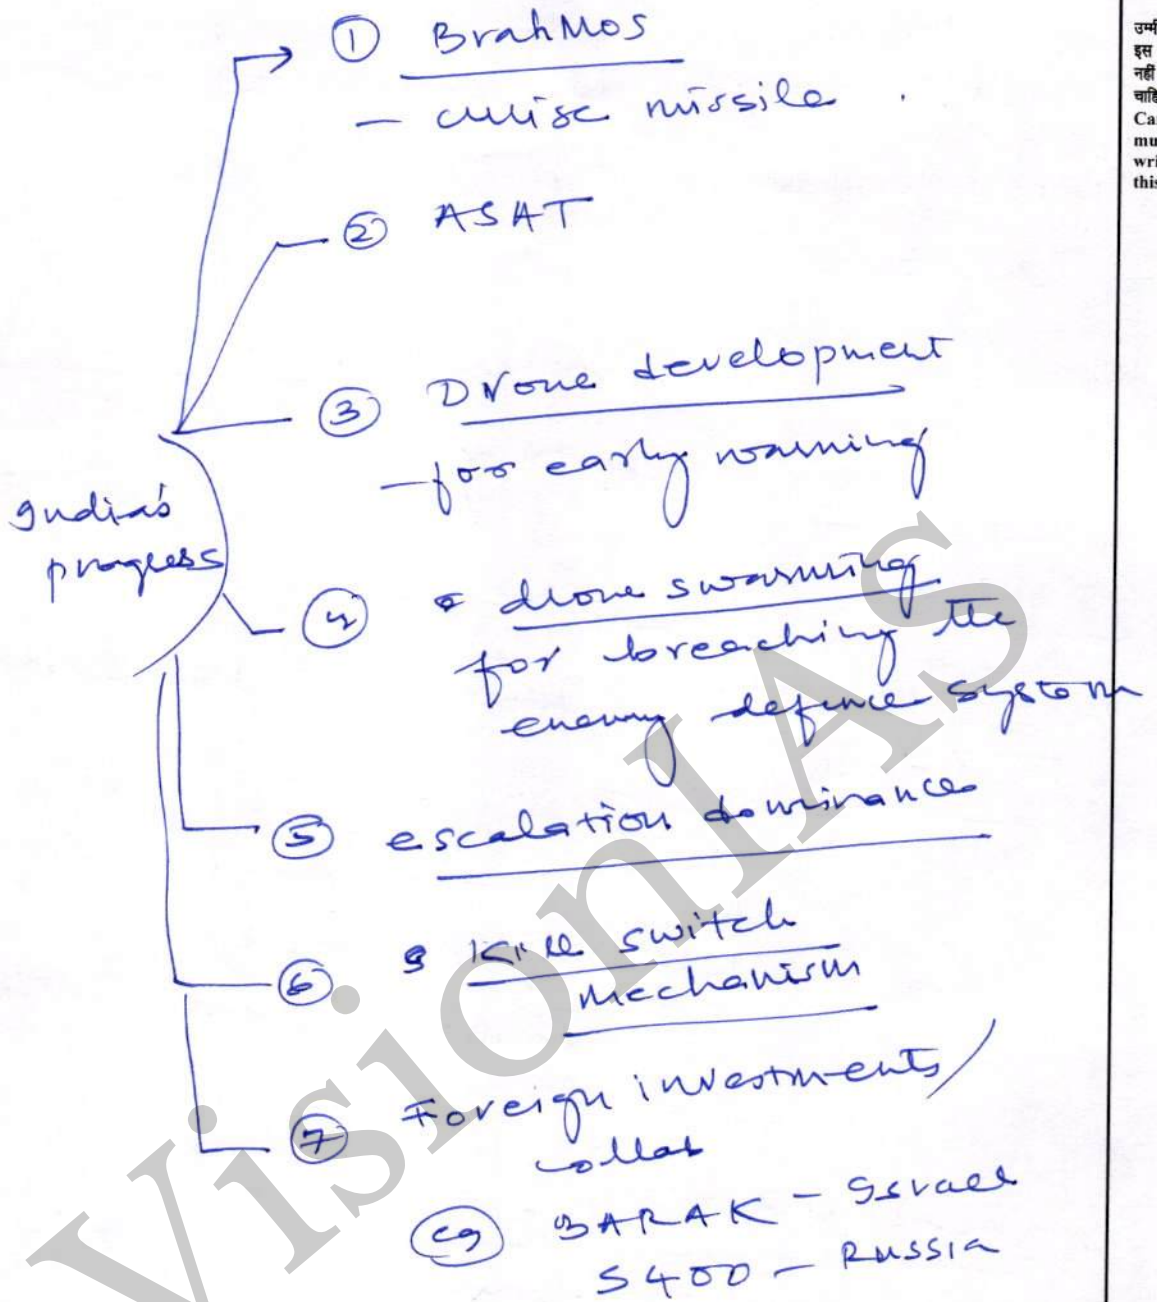 ① BrahMos
- cruise missile
② ASAT
③ Drone development
- for early warning
India's
progress
④ drone swarming
for breaching the
enemy defence system
⑤ escalation dominance
⑥ Kill switch
mechanism
⑦ Foreign investments/
collab
eg BARAK - Israel
S400 - Russia
VisionIAS
इस
नहीं